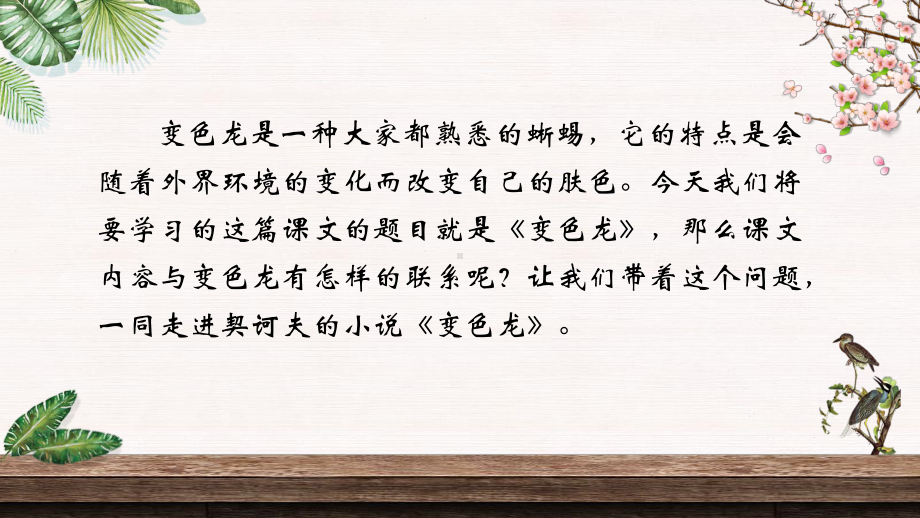 变色龙是一种大家都熟悉的蜥蜴，它的特点是会
随着外界环境的变化而改变自己的肤色。今天我们将
要学习的这篇课文的题目就是《变色龙》，那么课文
内容与变色龙有怎样的联系呢？让我们带着这个问题，
一同走进契诃夫的小说《变色龙》。